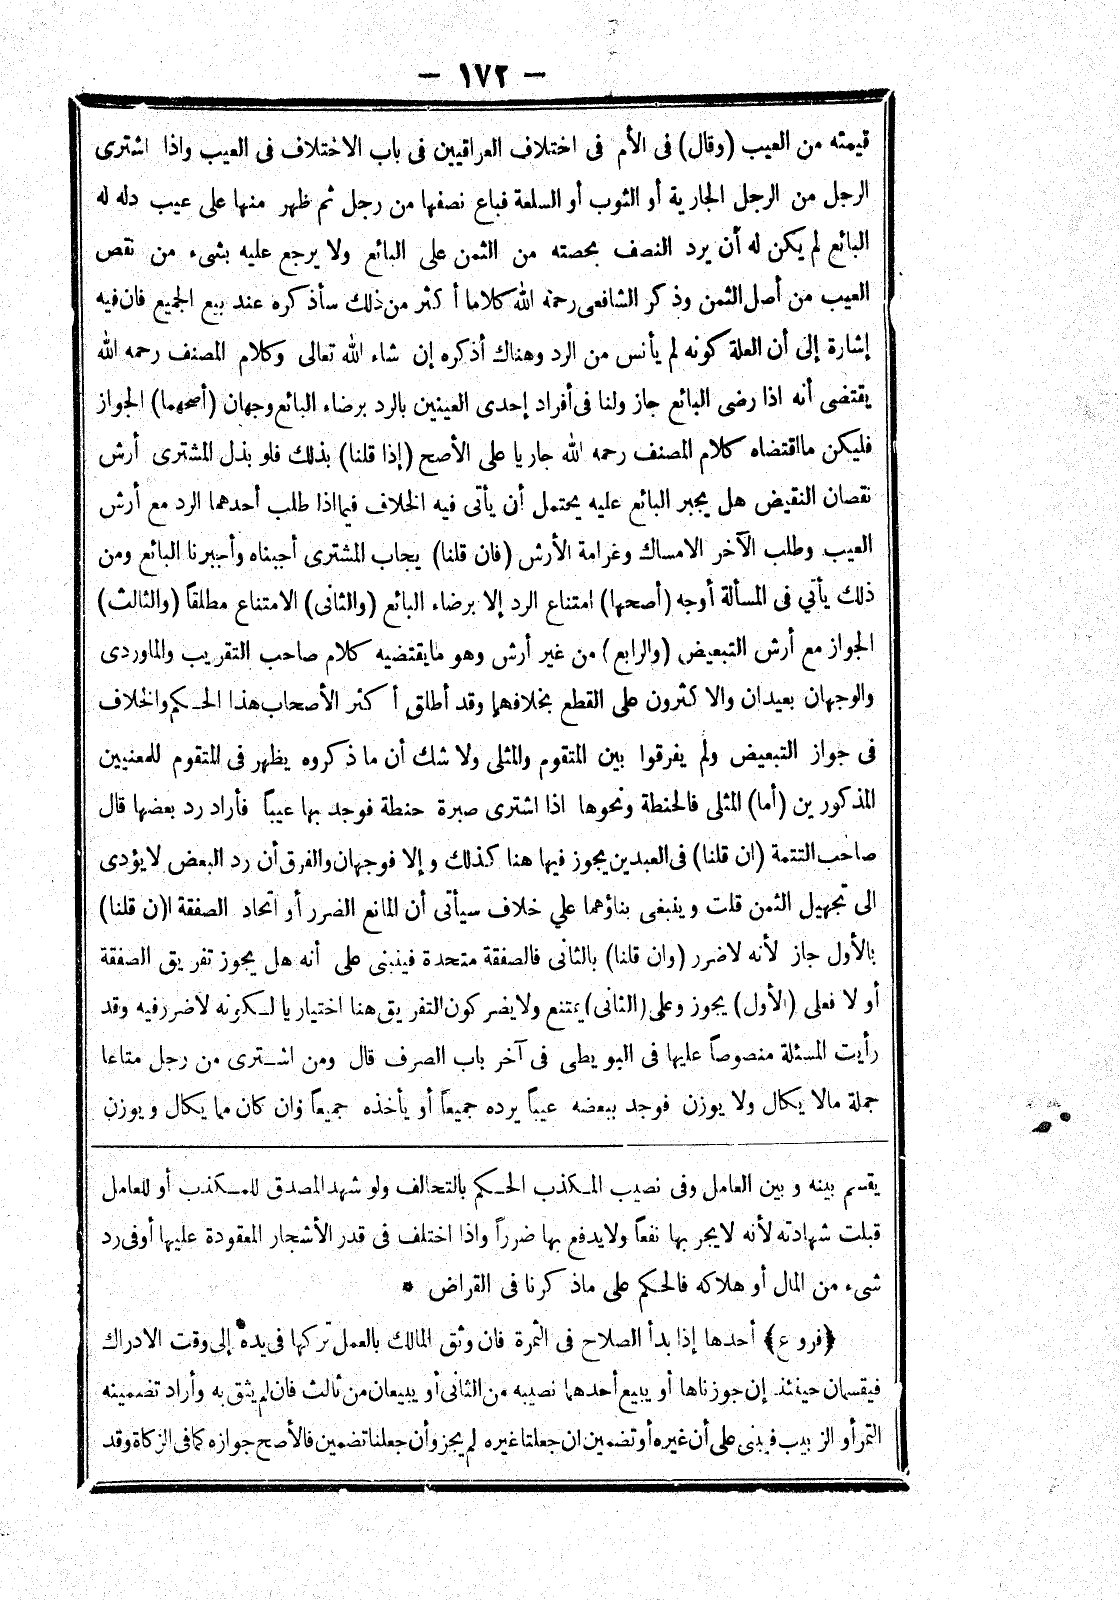 — ١٧٢ —
قيمته من العيب (وقال) فى الأم فى اختلاف العراقيين فى باب الاختلاف فى العيب واذا اشترى
الرجل من الرجل الجارية أو الثوب أو السلعة فباع نصفها من رجل ثم ظهر منها على عيب دله له
البائع لم يكن له أن يرد النصف بحصته من الثمن على البائع ولا يرجع عليه بشىء من نقص
العيب من أصل الثمن وذكر الشافعى رحمه الله كلاما أكثر من ذلك سأذكره عند بيع الجميع فان فيه
إشارة إلى أن العلة كونه لم يأنس من الرد وهناك أذكره إن شاء الله تعالى وكلام المصنف رحمه الله
يقتضى أنه اذا رضى البائع جاز ولنا فى أفراد إحدى العينين بالرد برضاء البائع وجهان (أصحهما) الجواز
فليكن مااقتضاه كلام المصنف رحمه الله جاريا على الأصح (إذا قلنا) بذلك فلو بذل المشترى أرش
نقصان النقيض هل يجبر البائع عليه يحتمل أن يأتى فيه الخلاف فيمااذا طلب أحدهما الرد مع أرش
العيب وطلب الآخر الامساك وغرامة الأرش (فان قلنا) يجاب المشترى أجبناه وأجبرنا البائع ومن
ذلك يأتي فى المسألة أوجه (أصحها) امتناع الرد إلا برضاء البائع (والثانى) الامتناع مطلقاً (والثالث)
الجواز مع أرش التبعيض (والرابع) من غير أرش وهو مايقتضيه كلام صاحب التقريب والماوردى
والوجهان بعيدان والاكثرون على القطع بخلافهما وقد أطلق أكثر الأصحاب هذا الحكم والخلاف
فى جواز التبعيض ولم يفرقوا بين المتقوم والمثلى ولا شك أن ماذكروه يظهر فى المتقوم للمعنيين
المذكورين (أما) المثلى فالحنطة ونحوها اذا اشترى صبرة حنطة فوجد بها عيباً فأراد رد بعضها قال
صاحب التتمة (ان قلنا) فى العبدين يجوز فيها هنا كذلك وإلا فوجهان والفرق أن رد البعض لايؤدى
الى تجهيل الثمن قلت وينبغى بناؤهما علي خلاف سيأتى أن المانع الضرر أو اتحاد الصفقة (ان قلنا)
بالأول جاز لأنه لاضرر (وان قلنا) بالثانى فالصفقة متحدة فينبنى على أنه هل يجوز تفريق الصفقة
أو لا فعلى (الأول) يجوز وعلى (الثانى) يمتنع ولايضر كون التفريق هنا اختياريا لكونه لاضرر فيه وقد
رأيت المسئلة منصوصاً عليها فى البويطى فى آخر باب الصرف قال ومن اشترى من رجل متاعا
جملة مالا يكال ولا يوزن فوجد ببعضه عيباً يرده جميعاً أو يأخذه جميعاً وان كان مما يكال ويوزن
يقسم بينه وبين العامل وفى نصيب المكذب الحكم بالتحالف ولو شهد المصدق للمكذب أو للعامل
قبلت شهادته لأنه لايجر بها نفعاً ولايدفع بها ضرراً واذا اختلف فى قدر الأشجار المعقودة عليها أوفى رد
شىء من المال أو هلاكه فالحكم على ماذكرنا فى القراض *
﴿فروع﴾ أحدها إذا بدأ الصلاح فى الثمرة فان وثق المالك بالعمل تركها فى يده إلى وقت الادراك
فيقسمان حينئذ إن جوزناها أو يبيع أحدهما نصيبه من الثانى أو يبيعان من ثالث فان لم يثق به وأراد تضمينه
التمرأو الزبيب فيبنى على أن غيره أو تضمين ان جعلنا غيره لم يجز وأن جعلنا تضمين فالأصح جوازه كما فى الزكاة وقد